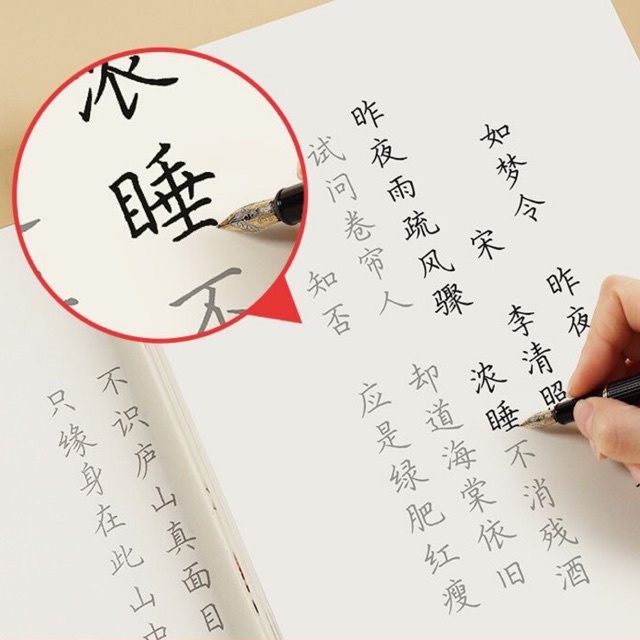 如梦令 昨夜
宋 李清照
昨夜雨疏风骤 浓睡不消残酒
试问卷帘人 却道海棠依旧
知否 应是绿肥红瘦
不识庐山真面目
只缘身在此山中
浓睡不